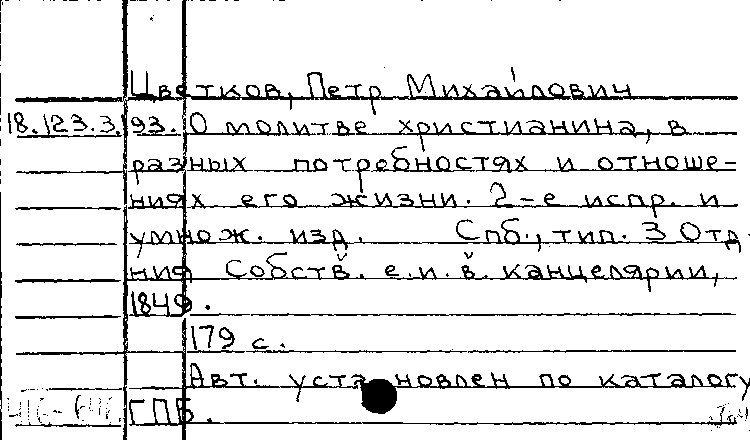 Цветков, Петр Михайлович
18.123.3.93. О молитве христианина, в
разных потребностях и отноше-
ниях его жизни. 2-е испр. и
умнож. изд. Спб., тип. 3 Отд-
ния Собств. е.и.в. канцелярии,
1849.
179 с.
Авт. установлен по каталогу
ГПБ.